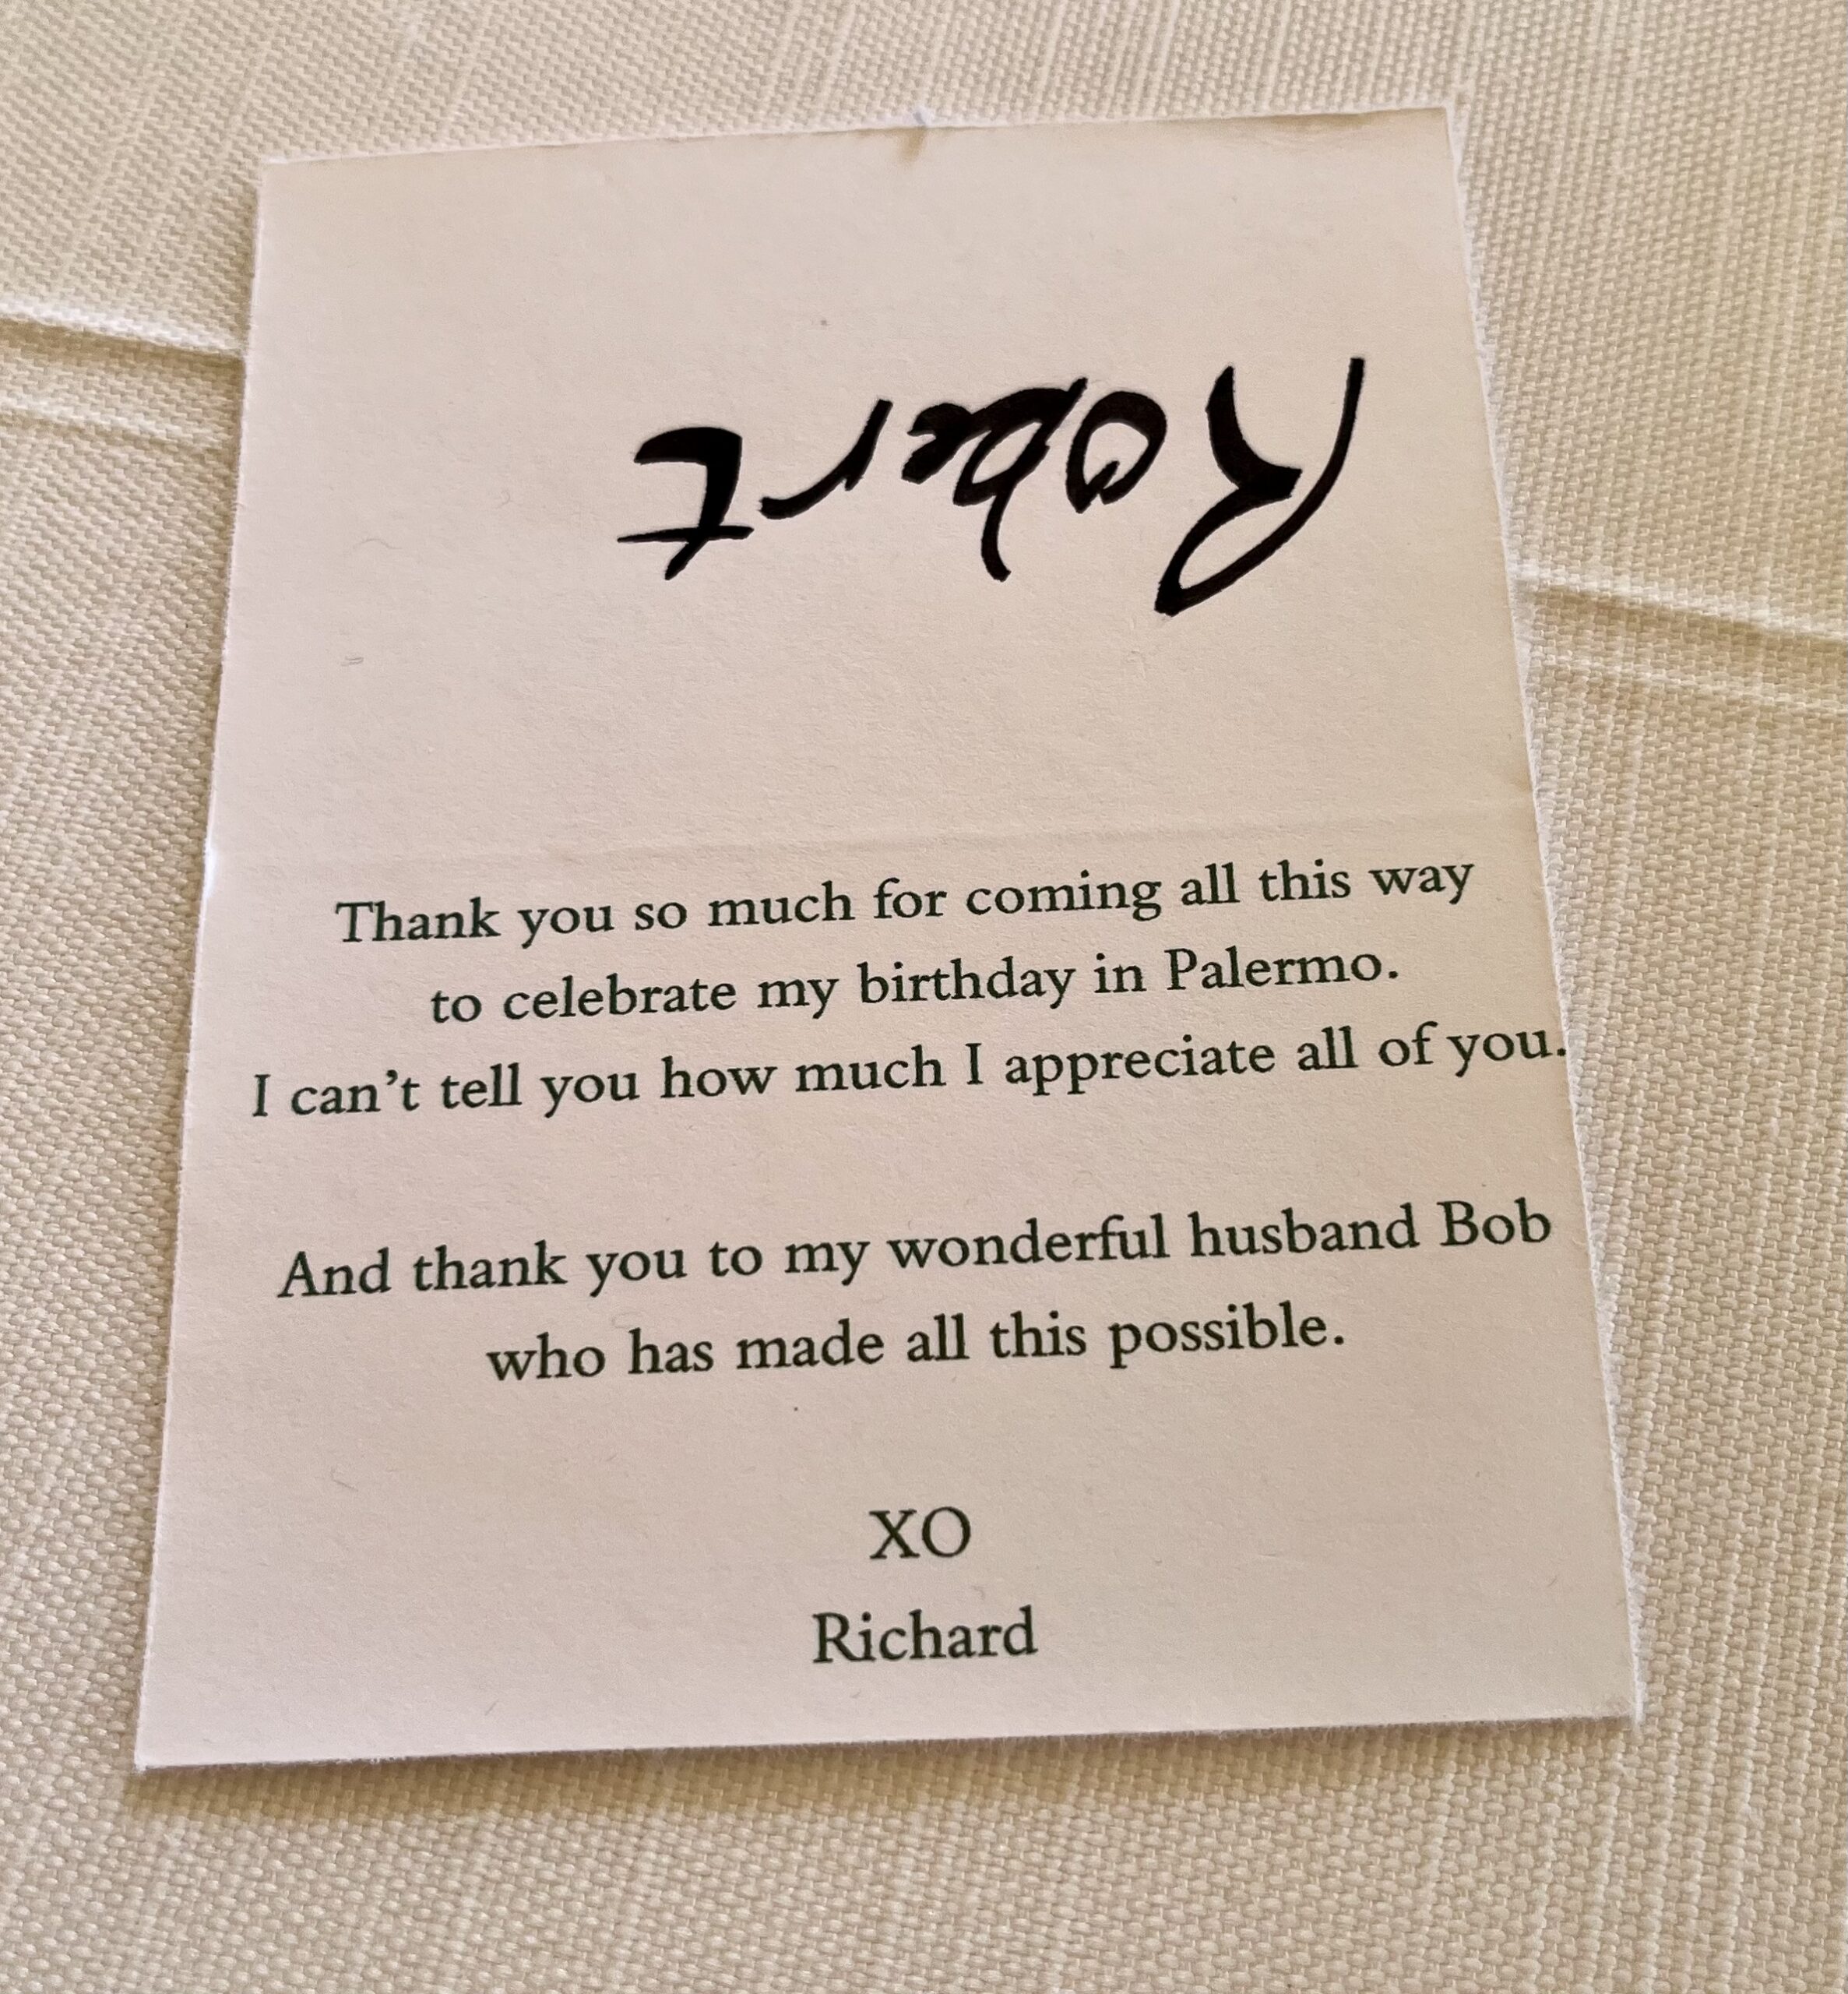 Robert
Thank you so much for coming all this way
to celebrate my birthday in Palermo.
I can’t tell you how much I appreciate all of you.
And thank you to my wonderful husband Bob
who has made all this possible.
XO
Richard